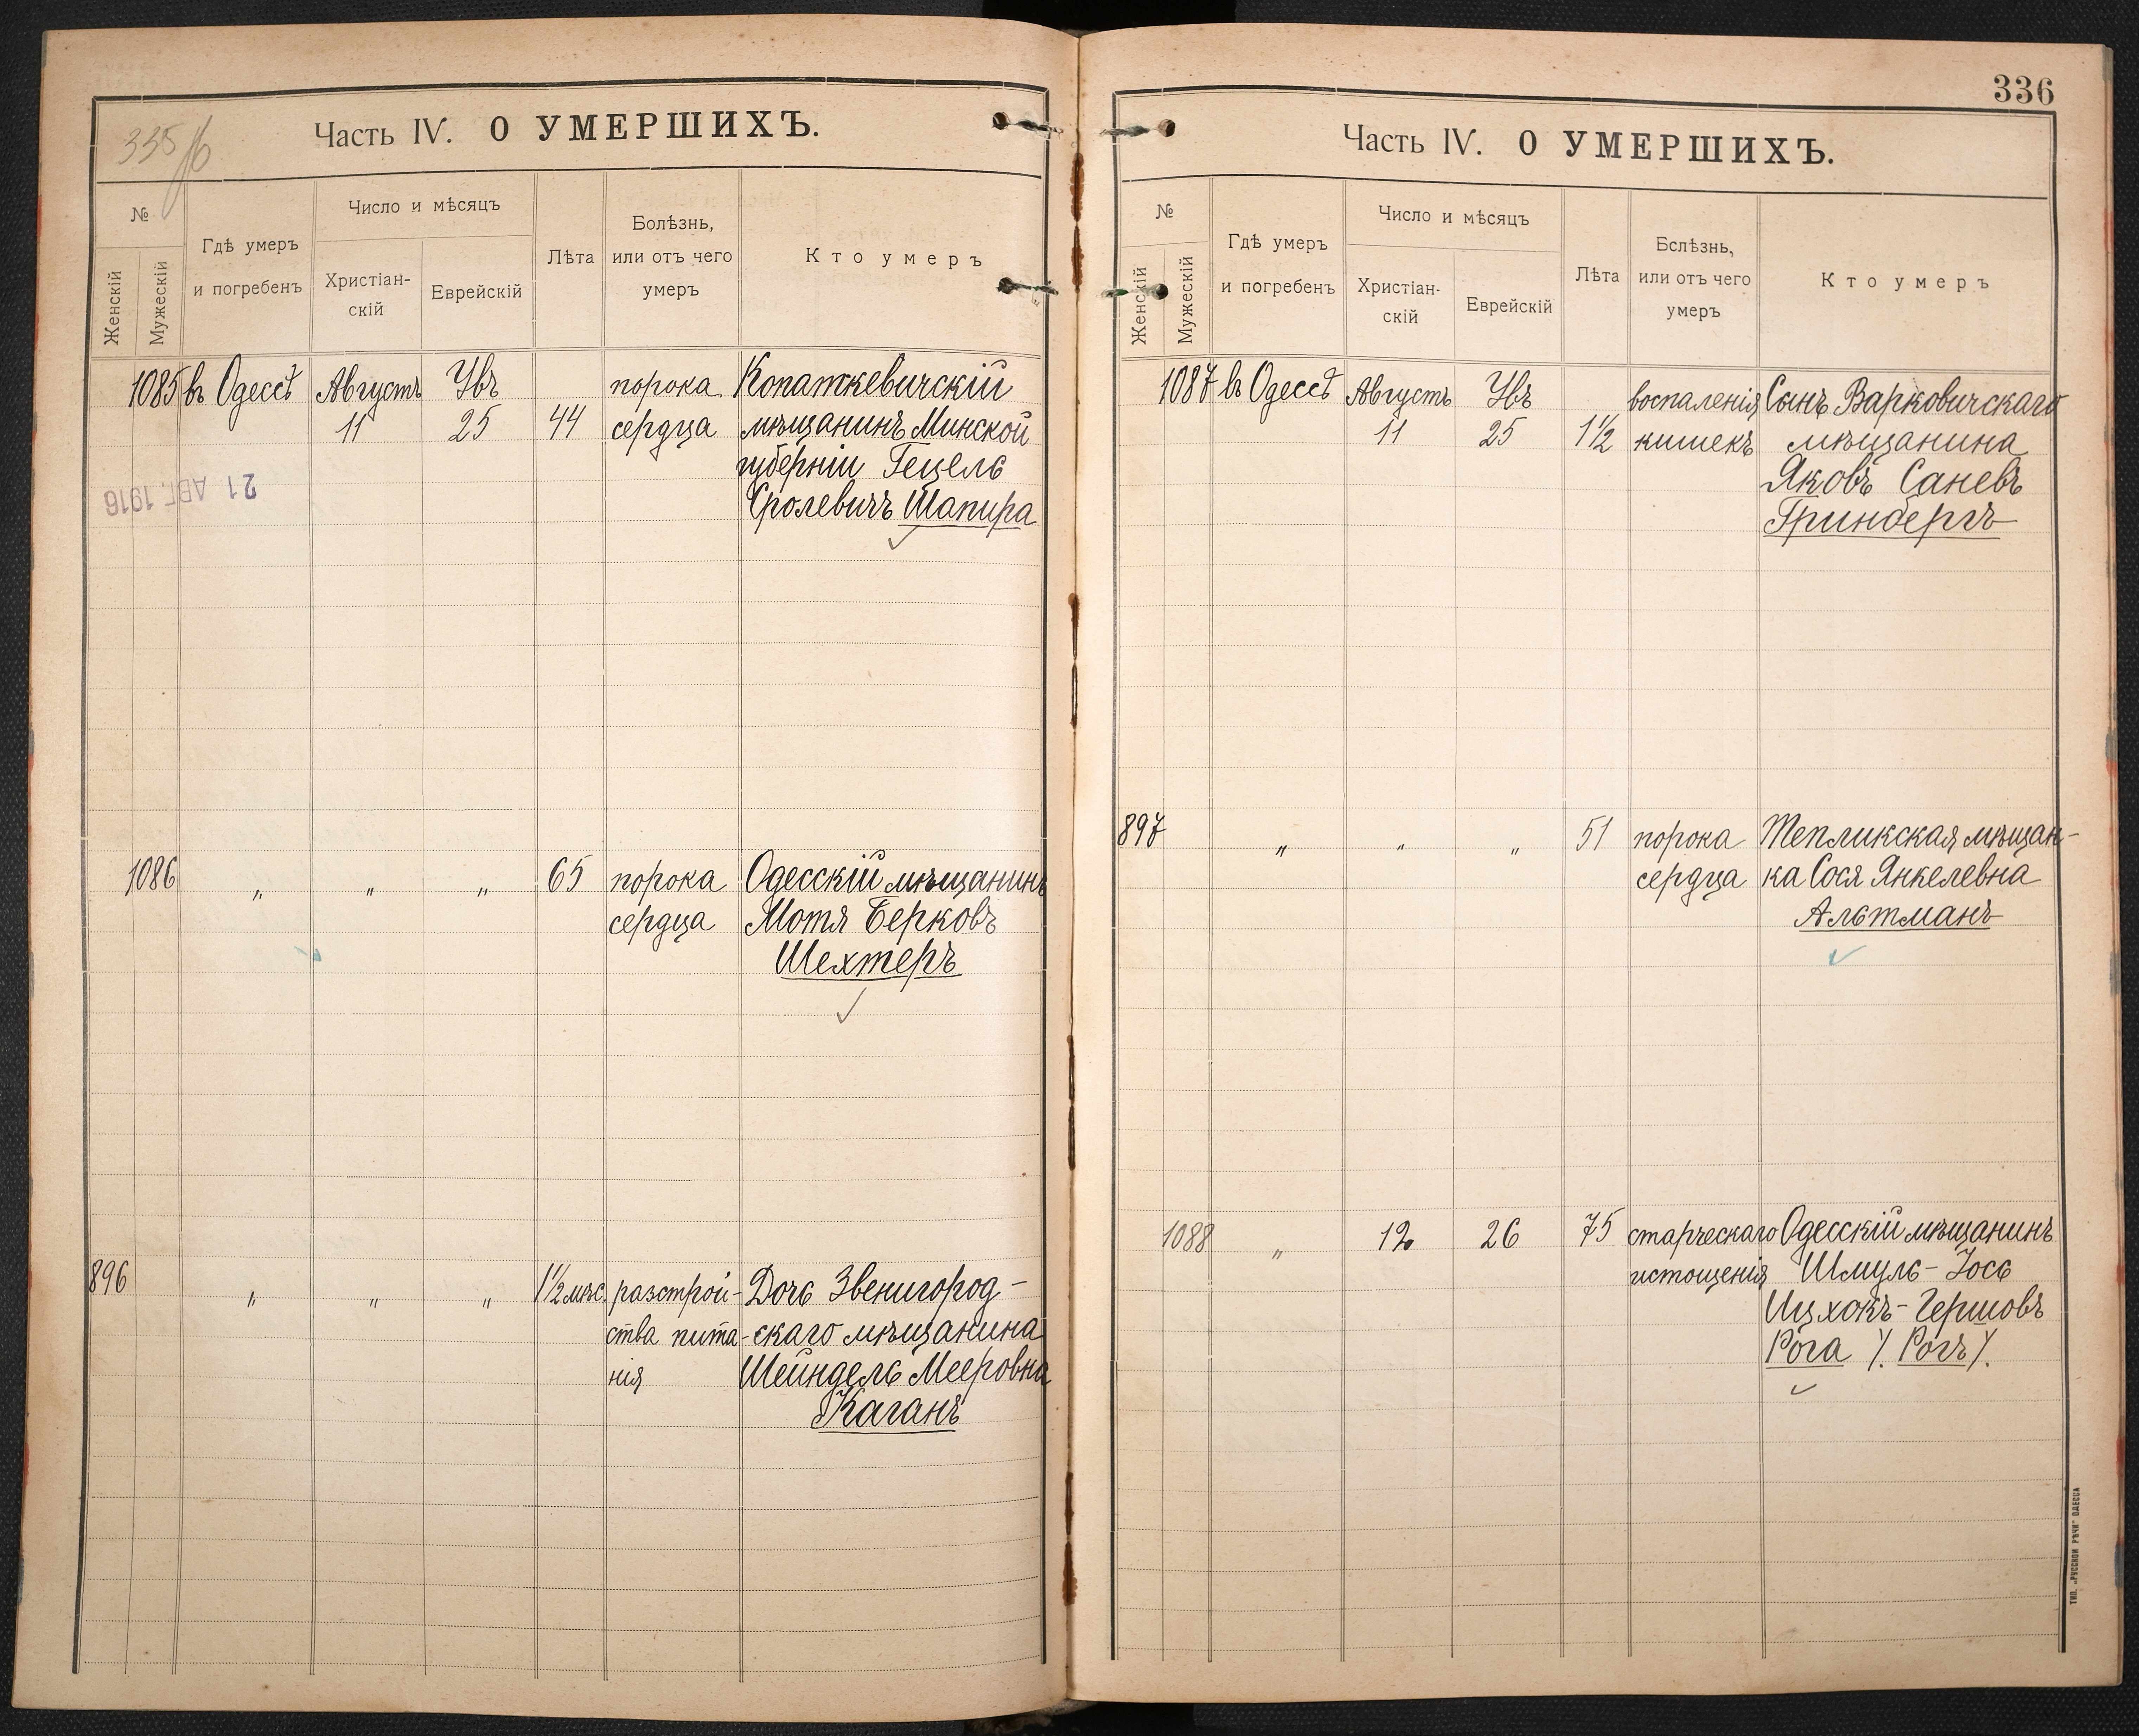 335/б
Часть IV. О УМЕРШИХЪ.
№
Женскій
Мужескій
Гдѣ умеръ
и погребенъ
Число и мѣсяцъ
Христіан-
скій
Еврейскій
Лѣта
Болѣзнь,
или отъ чего
умеръ
Кто умеръ
1085 въ Одессѣ Августъ Увъ порока Копаткевичскій
11 25 44 сердца мѣщанинъ Минской
губерніи Гецель
Сролевичъ Шапира
21 АВГ. 1916
1086 " " " 65 порока Одесскій мѣщанинъ
сердца Мотя Берковъ
Шехтеръ
896 " " " 1½ мѣс. разстрой- Дочь Звенигород-
ства пита- скаго мѣщанина
нія Шейндель Мееровна
Каганъ
336
Часть IV. О УМЕРШИХЪ.
№
Женскій
Мужескій
Гдѣ умеръ
и погребенъ
Число и мѣсяцъ
Христіан-
скій
Еврейскій
Лѣта
Бслѣзнь,
или отъ чего
умеръ
Кто умеръ
1087 въ Одессѣ Августъ Увъ воспаленія Сынъ Варковичскаго
11 25 1½ кишекъ мѣщанина
Яковъ Саневъ
Гринбергъ
897 " " " 51 порока Тепликская мѣщан-
сердца ка Сося Янкелевна
Альтманъ
1088 " 12 26 75 старческаго Одесскій мѣщанинъ
истощенія Шмуль-Іось
Ицхокъ-Гершовъ
Рога /. Рогъ /.
ТИП. „РУССКОЙ РѢЧИ" ОДЕССА